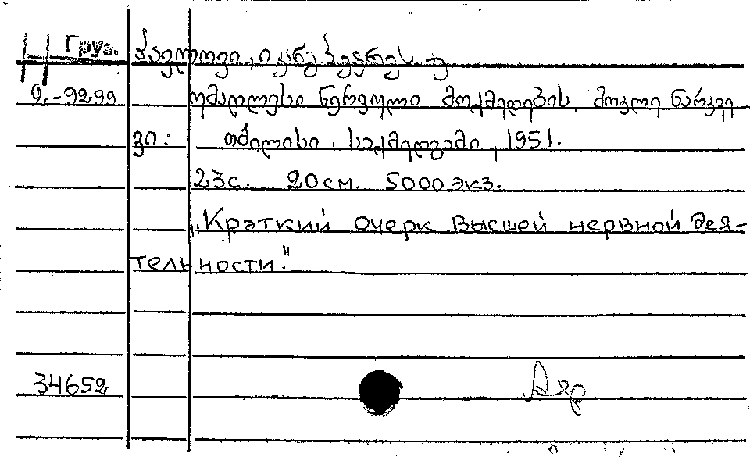 Груз. პავლოვი, ივანე პეტრეს ძე
უმაღლესი ნერვული მოქმედების მოკლე ნარკვე
ვი: თბილისი, საქმედგამი, 1951.
23с. 20см. 5000 экз.
„Краткий очерк высшей нервной дея-
тельности."
34652